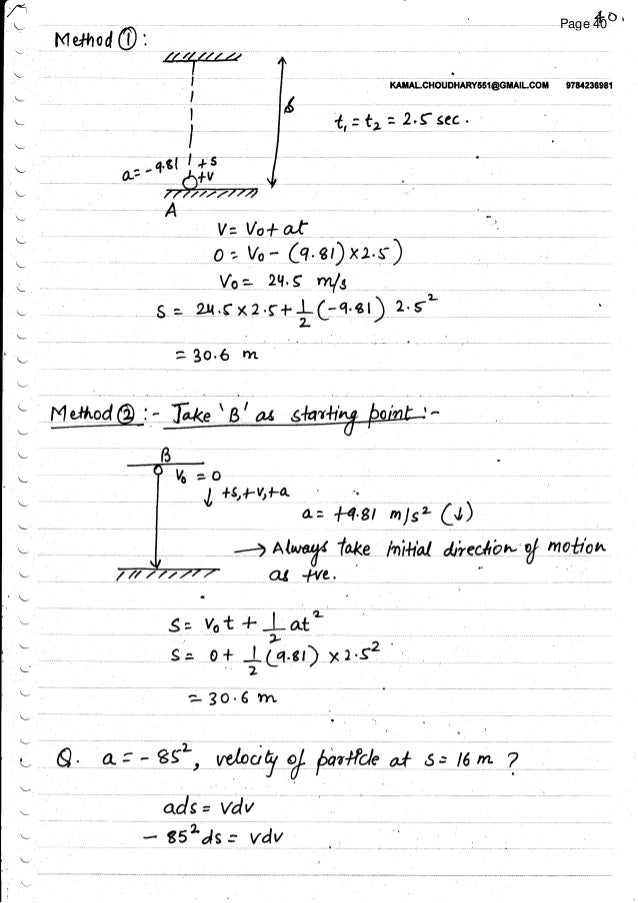 Page 40
40.
Method ①:
KAMAL.CHOUDHARY551@GMAIL.COM 9784236981
t₁ = t₂ = 2.5 sec.
a = -9.81 +s
+v
A
V = V₀ + at
0 = V₀ - (9.81) × 2.5)
V₀ = 24.5 m/s
S = 24.5 × 2.5 + 1/2 (-9.81) 2.5²
= 30.6 m
Method ② :- Take 'B' as starting point :-
B
V₀ = 0
↓ +s, +v, +a
a = +9.81 m/s² (↓)
→ Always take initial direction of motion
as +ve.
S = V₀t + 1/2 at²
S = 0 + 1/2 (9.81) × 2.5²
= 30.6 m
Q. a = - 8S², velocity of particle at S = 16 m ?
ads = vdv
- 8S² ds = vdv